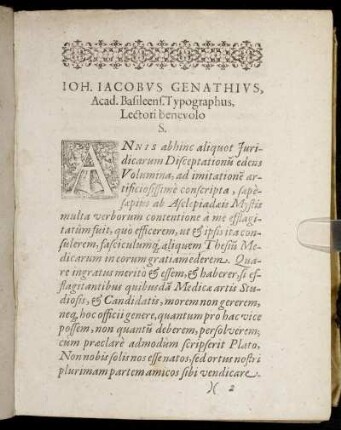 IOH. IACOBVS GENATHIVS,
Acad. Basileens. Typographus,
Lectori benevolo
S.
ANNIS abhinc aliquot Juri-
dicarum Disceptationũ edens
Volumina, ad imitationẽ ar-
tificiosissimè conscripta, sæpè-
sæpius ab Asclepiadæis Mystis
multa verborum contentione à me efflagi-
tatum fuit, quo efficerem, ut & ipsis ita con-
sulerem, fasciculumq; aliquem Thesiũ Me-
dicarum in eorum gratiam ederem. Qua-
re ingratus meritò & essem, & haberer, si ef-
flagitantibus quibusdã Medicæ artis Stu-
diosis, & Candidatis, morem non gererem,
neq; hoc officii genere, quantum pro hac vice
possem, non quantũ deberem, persolverem,
cum præclarè admodum scripserit Plato,
Non nobis solis nos esse natos, sed ortus nostri
plurimam partem amicos sibi vendicare.
)( 2